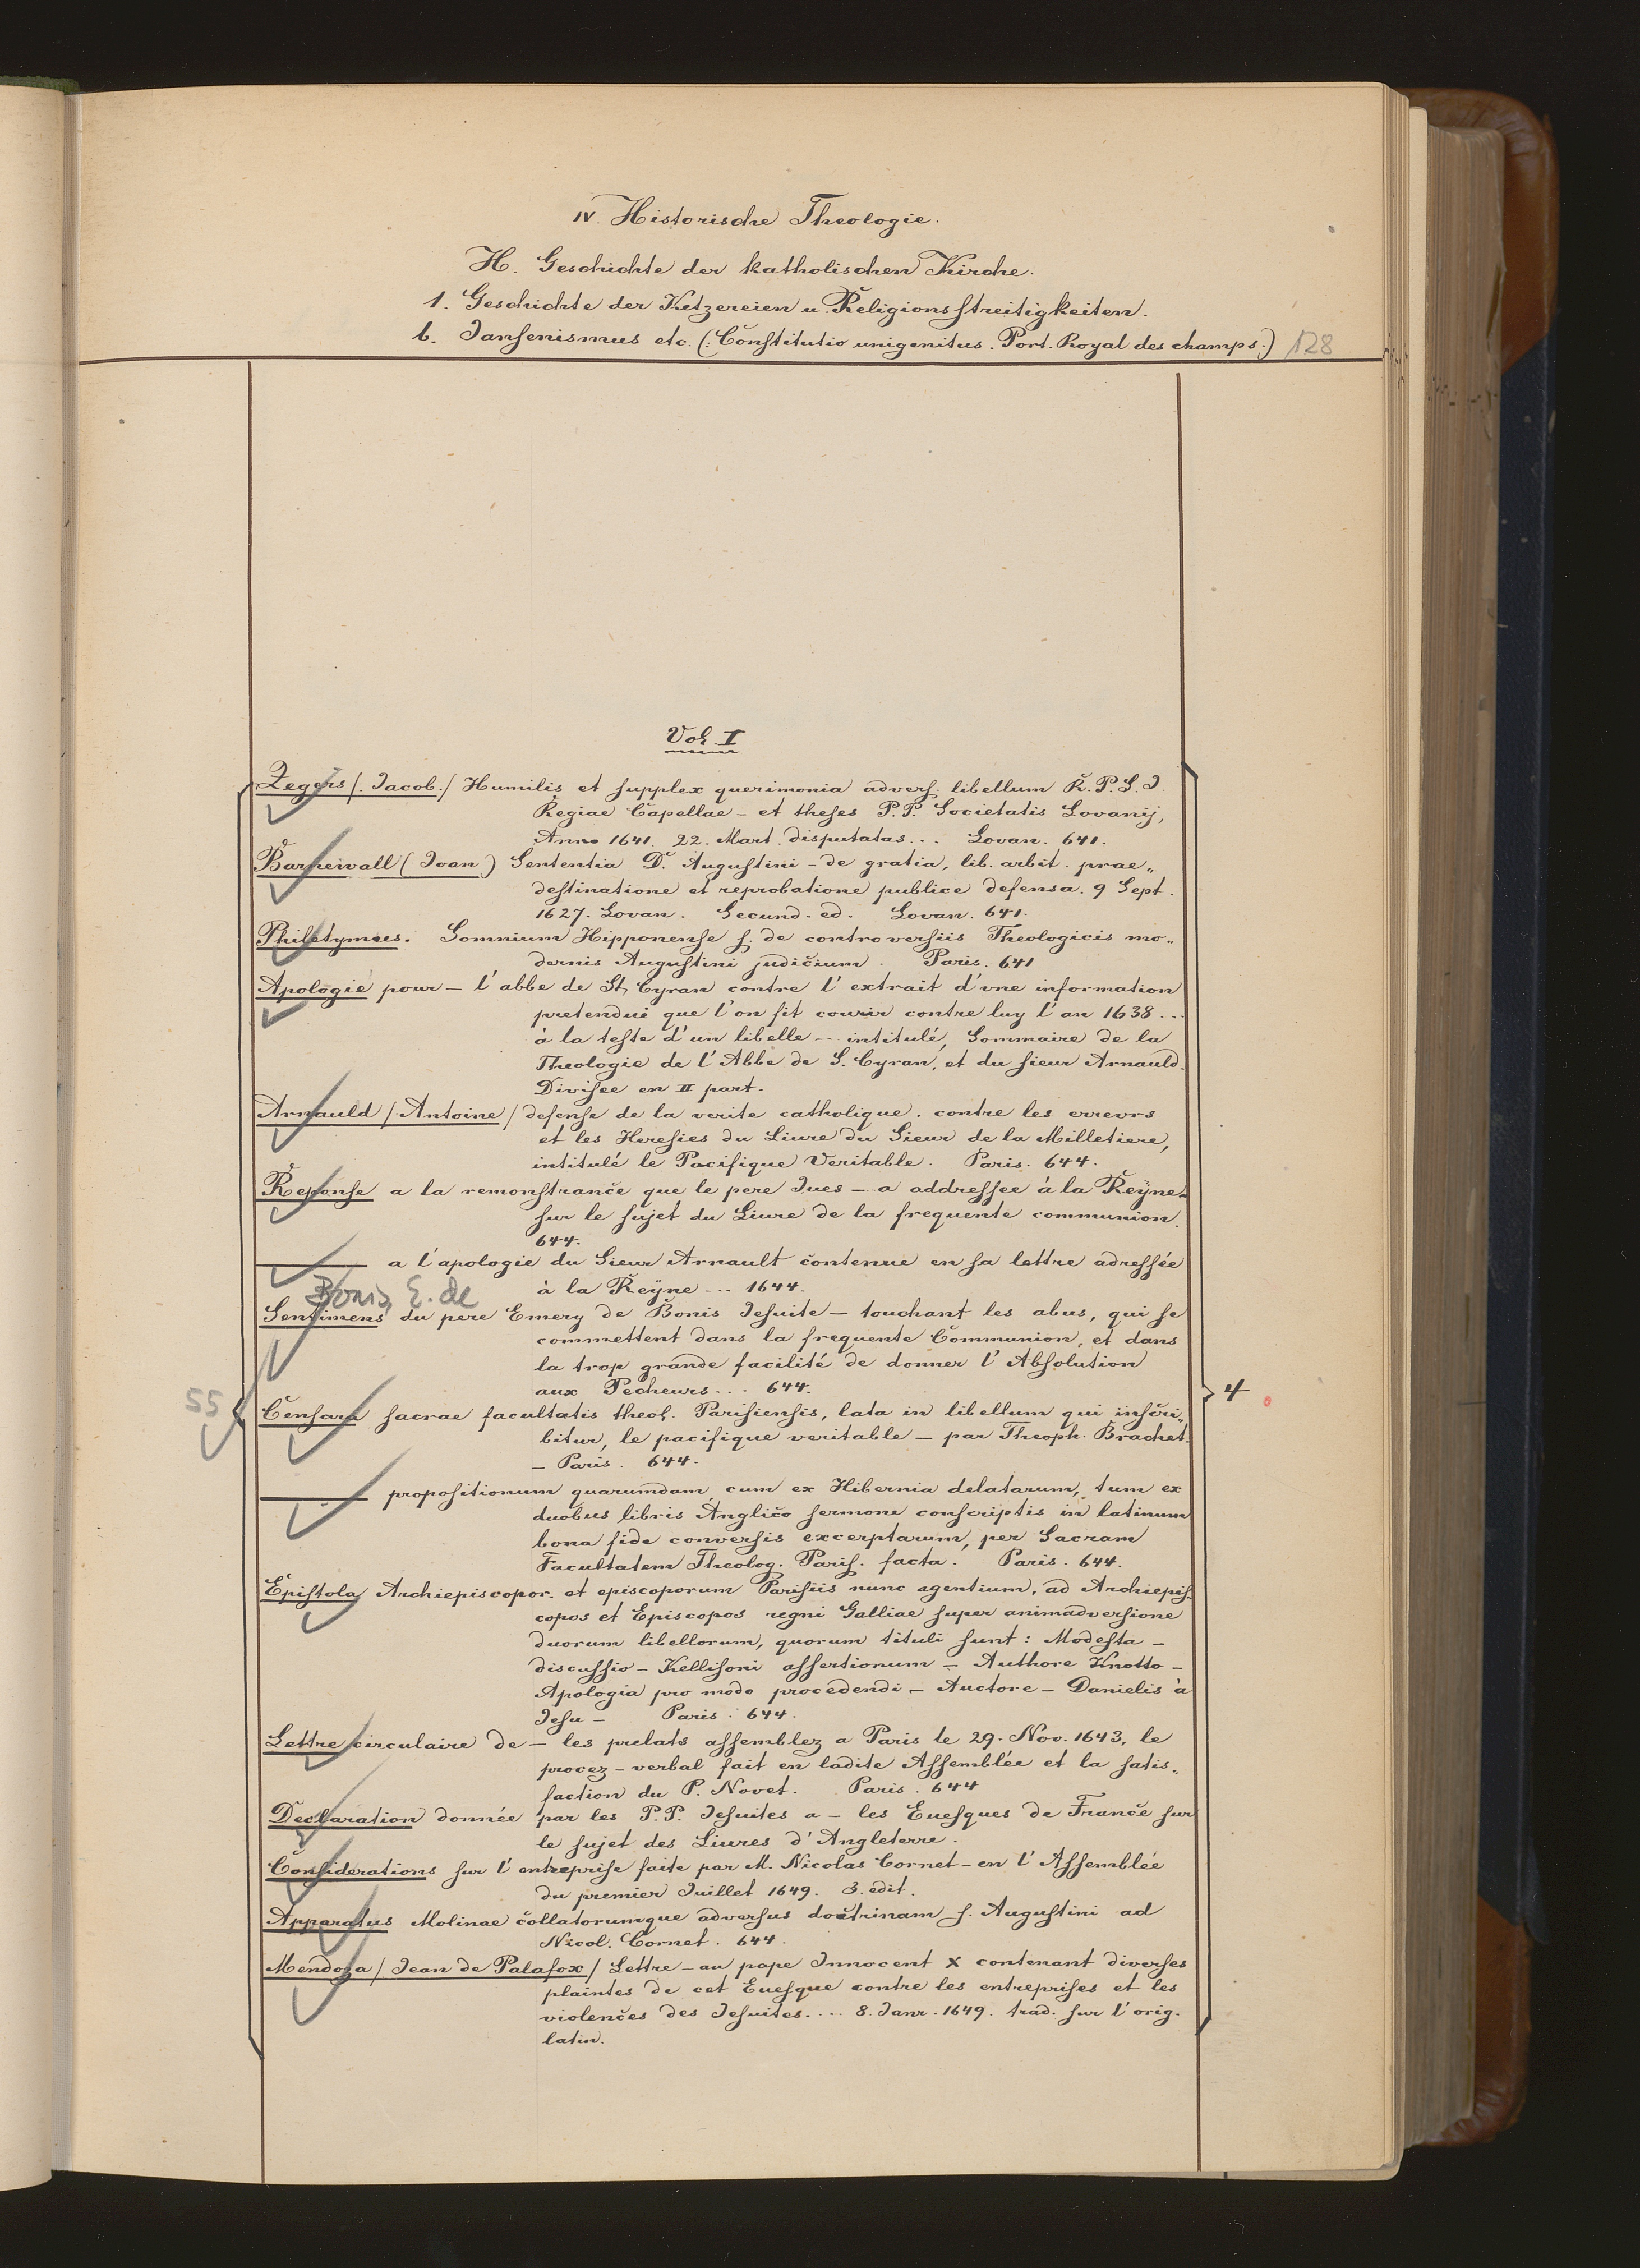 IV. Historische Theologie.
H. Geschichte der katholischen Kirche.
1. Geschichte der Ketzereien u. Religionsstreitigkeiten.
b. Jansenismus etc. (: Constitutio unigenitus. Port. Royal des champs.) 128
Vol. I
Zegers /. Jacob./ Humilis et supplex querimonia advers. libellum R. P. S. J.
Regiae Capellae – et theses P.P. Societatis Lovanij,
Anno 1641. 22. Mart. disputatas... Lovan. 641.
(Joan) Sententia D. Augustini – de gratia, lib. arbit. prae„
destinatione et reprobatione publice defensa. 9 Sept.
1627. Lovan. Secund. ed. Lovan. 641.
Philetymus. Somnium Hipponense s. de controversiis Theologicis mo„
dernis Augustini judicium. Paris. 641
Apologie pour – l'abbe de St, Cyran contre l'extrait d'vne information
pretendui que l'on fit courir contre luy l'an 1638...
à la teste d'un libelle – .. intitulé, Sommaire de la
Theologie de l'Abbe de S. Cyran, et du sieur Arnauld.
Divisee en II part.
Arnauld /Antoine/ defense de la verite catholique. contre les errevrs
et les Heresies du Liure du Sieur de la Milletiere,
intitulé le Pacifique Veritable. Paris. 644.
Reponse a la remonstrance que le pere Jues – a addressee à la Reÿne
sur le sujet du Liure de la frequente communion.
644.
——— a l'apologie du Sieur Arnault contenue en sa lettre adressée
à la Reÿne... 1644.
Bonis, E. de
Sentimens du pere Emery de Bonis Jesuite – touchant les abus, qui se
commettent dans la frequente Communion, et dans
la trop grande facilité de donner l'Absolution
aux Pecheurs... 644.
55 4
Censura sacrae facultatis theol. Parisiensis, lata in libellum qui inscri„
bitur, le pacifique veritable – par Theoph. Brachet.
– Paris. 644.
——— propositionum quarumdam, cum ex Hibernia delatarum, tum ex
duobus libris Anglico sermone conscriptis in latinum
bona fide conversis excerptarum, per Sacram
Facultatem Theolog. Paris. facta. Paris. 644.
Epistola Archiepiscopor. et episcoporum Parisiis nunc agentium, ad Archiepis„
copos et Episcopos regni Galliae super animadversione
duorum libellorum, quorum tituli sunt: Modesta –
discussio – Kellisoni assertionum – Authore Knotto –
Apologia pro modo procedendi – Auctore – Danielis à
Jesu – Paris. 644.
Lettre circulaire de – les prelats assemblez a Paris le 29. Nov. 1643, le
procez-verbal fait en ladite Assemblée et la satis„
faction du P. Novet. Paris. 644
Declaration donnée par les P.P. Jesuites a – les Euesques de France sur
le sujet des Liures d'Angleterre.
Considerations sur l'entreprise faite par M. Nicolas Cornet – en l'Assemblée
du premier Juillet 1649. 3. edit.
Apparatus Molinae collatorumque adversus doctrinam S. Augustini ad
Nicol. Cornet. 644.
Mendoza / Jean de Palafox / Lettre – au pape Innocent X contenant diverses
plaintes de cet Euesque contre les entreprises et les
violences des Jesuites.... 8. Janr. 1649. trad. sur l'orig.
latin.